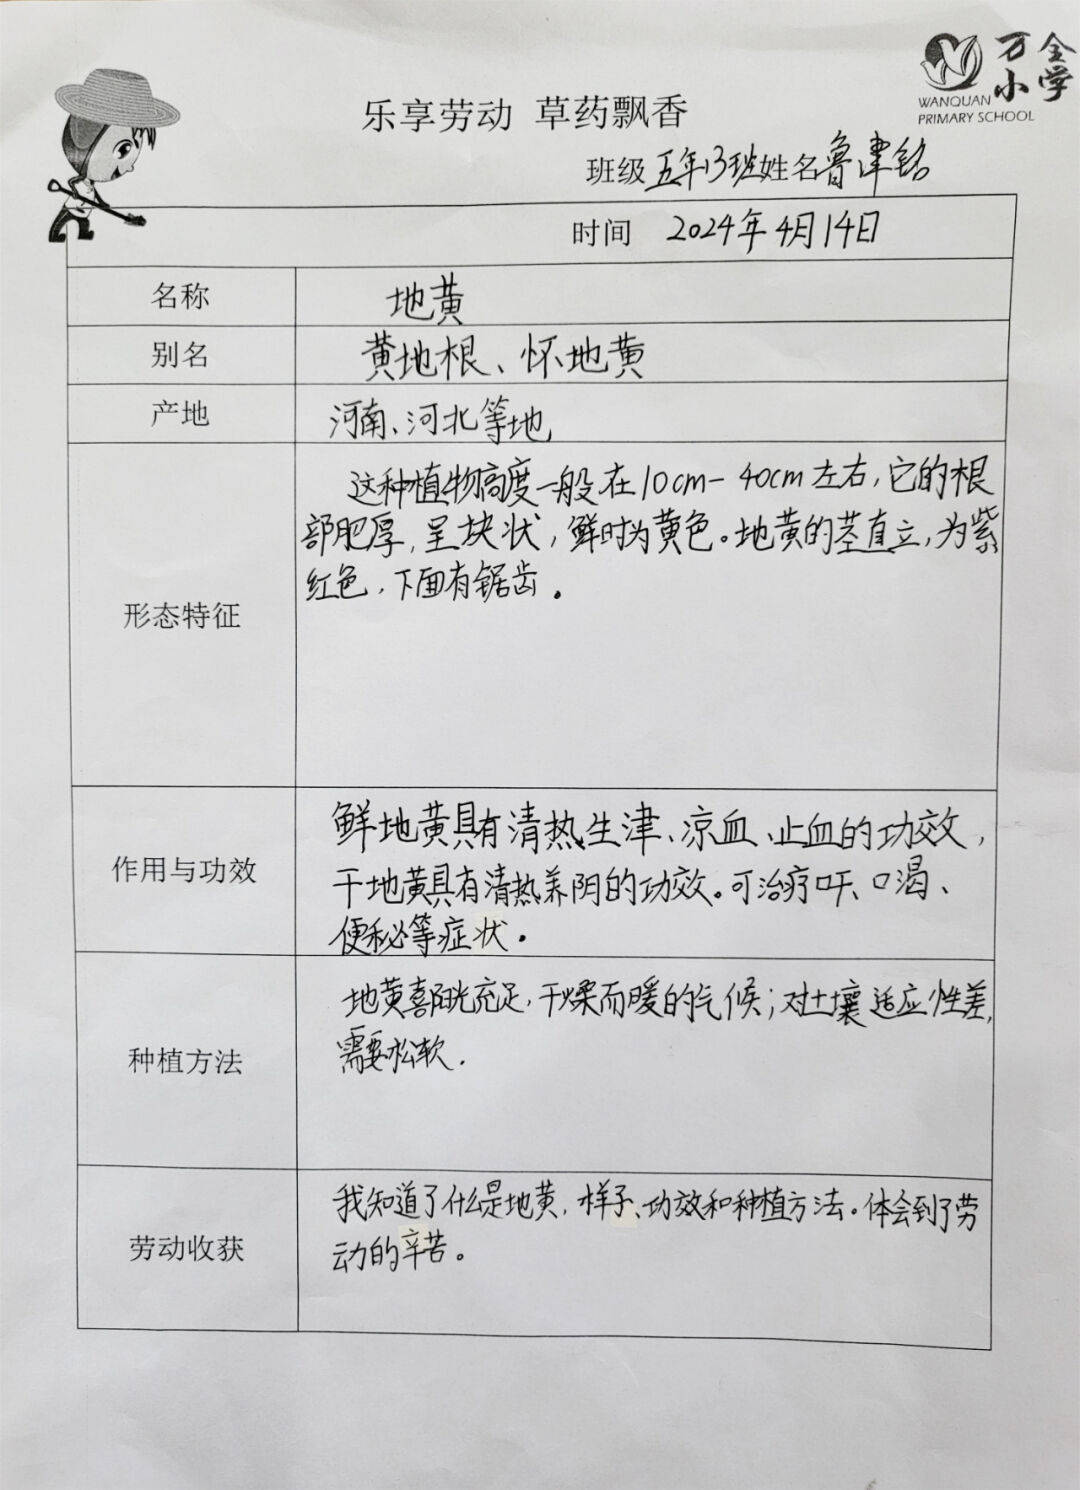 万全
小学
WANQUAN
PRIMARY SCHOOL
乐享劳动 草药飘香
班级 五年13班 姓名 鲁津铭
时间 2024年4月14日
名称 地黄
别名 黄地根、怀地黄
产地 河南、河北等地
形态特征
这种植物高度一般在10cm-40cm左右,它的根
部肥厚,呈块状,鲜时为黄色。地黄的茎直立,为紫
红色,下面有锯齿。
作用与功效
鲜地黄具有清热生津、凉血、止血的功效,
干地黄具有清热养阴的功效。可治疗吓、口渴、
便秘等症状。
种植方法
地黄喜阳光充足,干燥而暖的气候;对土壤适应性差,
需要松软.
劳动收获
我知道了什么是地黄,样子、功效和种植方法。体会到了劳
动的辛苦。